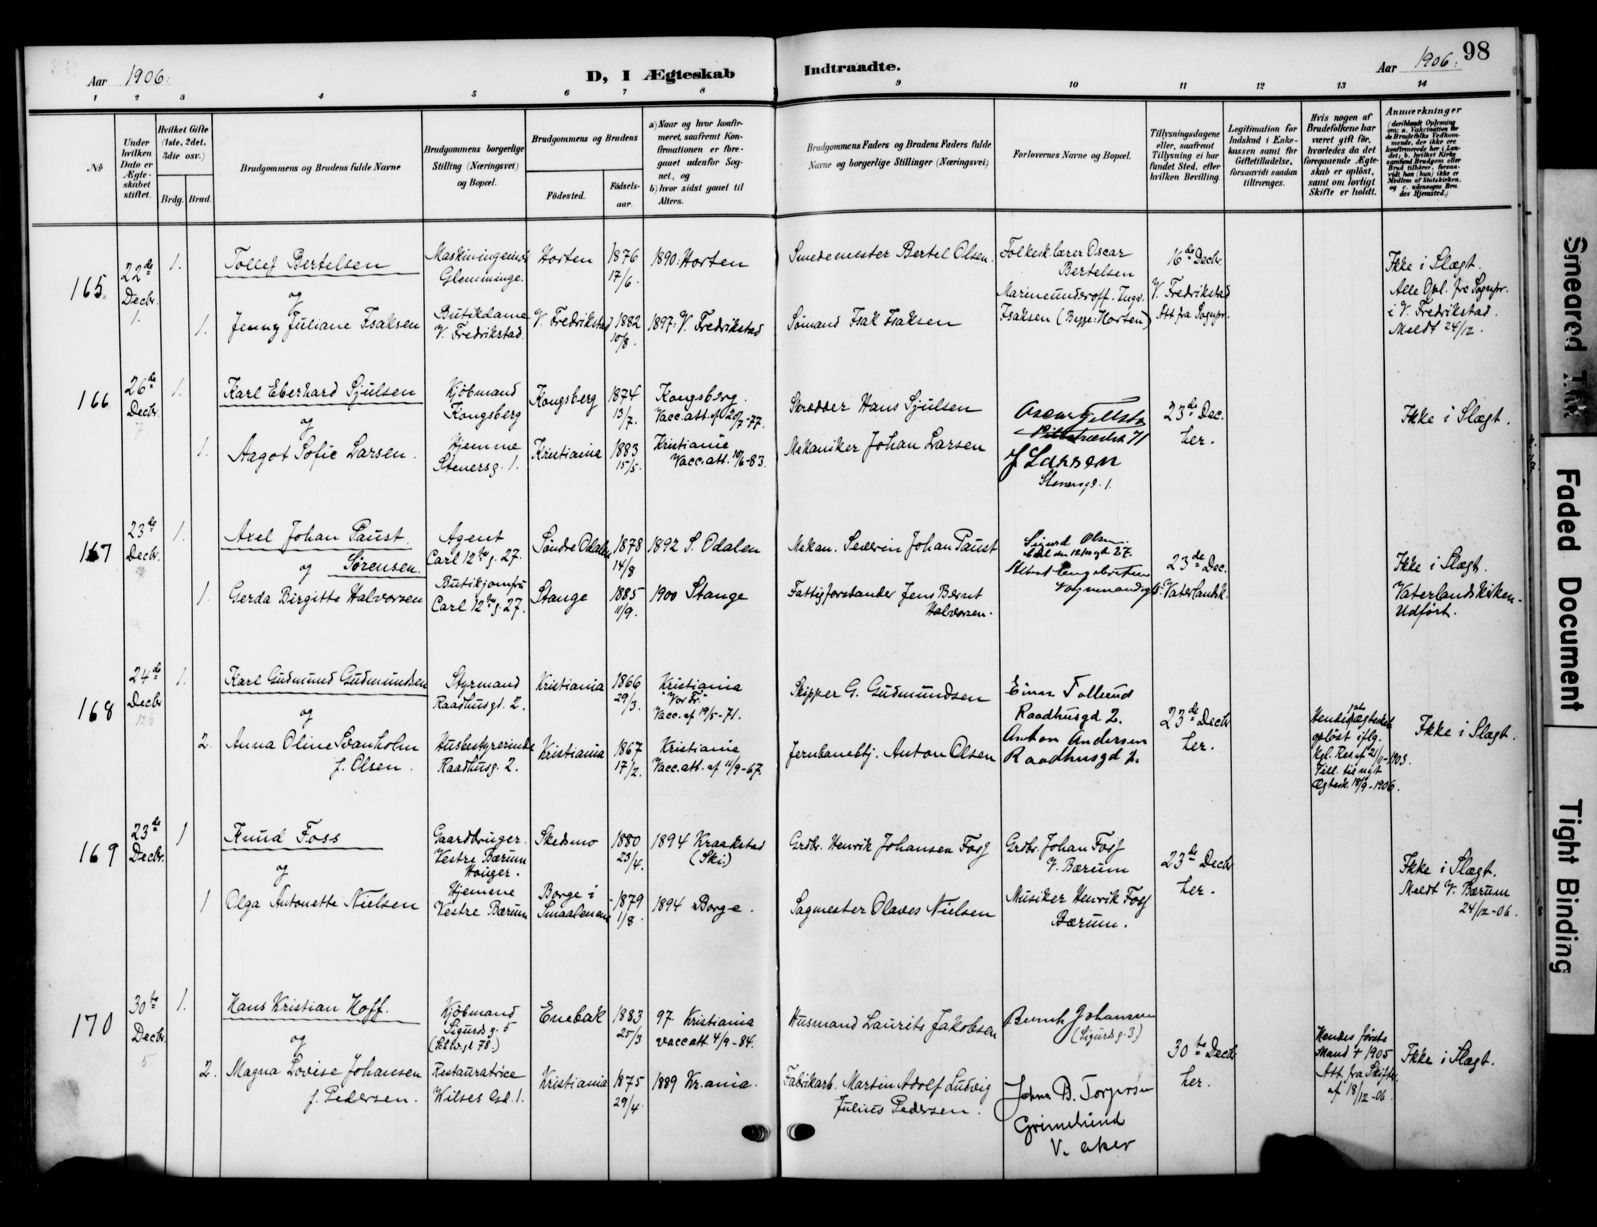 Aar 1906.
D, I Ægteskab Indtraadte.
Aar 1906. 98
1 2 3 4 5 6 7 8 9 10 11 12 13 14
No
Under hvilken Dato er Ægteskabet stiftet.
Hvilket Gifte (1ste, 2det, 3die osv.)
Brdg. Brud.
Brudgommens og Brudens fulde Navne
Brudgommens borgerlige Stilling (Næringsvei) og Bopæl.
Brudgommens og Brudens
Fødested.
Fødselsaar.
a) Naar og hvor konfirmeret, saafremt Konfirmationen er foregaaet udenfor Sognet, og
b) hvor sidst gaaet til Alters.
Brudgommens Faders og Brudens Faders fulde Navne og borgerlige Stillinger (Næringsvei)
Forlovernes Navne og Bopæl.
Tillysningsdagene eller, saafremt Tillysning ei har fundet Sted, efter hvilken Bevilling.
Legitimation for Indskud i Enkekassen samt for Giftetilladelse, forsaavidt saadan tiltrenges.
Hvis nogen af Brudefolkene har været gift før, hvorledes da det foregaaende Ægteskab er opløst, samt om lovligt Skifte er holdt.
Anmærkninger
165.
22de Decbr. 1.
1.
Tollef Bertelsen
og
1. Jenny Juliane Isaksen
Maskiningeniør
Glemminge.
Butikdame
V. Fredrikstad.
Horten 1876 17/6. 1890: Horten
V. Fredrikstad 1882 10/8. 1897: V. Fredrikstad
Smedemester Bertel Olsen.
Sømand Isak Isaksen
Folkesk.lærer Oscar
Bertelsen
Marineunderoff. Ingv.
Isaksen (Begge: Horten)
16de Decbr.
V. Fredrikstad
Att fra Sognpr.
Ikke i Slægt.
Alle Opl. fra Sognpr.
i V. Fredrikstad.
Meldt 24/12.
166
26de Decbr.
1.
Karl Eberhard Sjulsen
og
1. Aagot Sofie Larsen.
Kjøbmand
Kongsberg
Hjemme
Stenersg. 1.
Kongsberg 1874 13/7.
Kongsberg.
Vacc.att. af 20/7-77.
Kristiania 1883 15/5.
Kristiania
Vacc.att. 10/6-83.
Skrædder Hans Sjulsen
Mekaniker Johan Larsen
J Larsen
Stenersgd. 1.
23de Dec.
her.
Ikke i Slægt.
167
23de Decbr.
1.
Axel Johan Paust.
og Sørensen.
1. Gerda Birgitte Halvorsen
Agent
Carl 12tes g. 27.
Butikjomfru
Carl 12tes g. 27.
Søndre Odalen 1878 14/8 1892 S. Odalen
Stange 1885 11/9. 1900 Stange
Mekan. Severin Johan Paust
Fattigforstander Jens Bernt
Halvorsen.
Sigurd Olsen
23de Dec.
Vaterlandsk.
Ikke i Slægt.
Vaterlandskirken.
Udført.
168
24de Decbr
1.
Karl Gudmund Gudmundsen
og
2. Anna Oline Svanholm
f. Olsen.
Styrmand
Raadhusgd. 2.
Husbestyrerinde
Raadhusg. 2.
Kristiania 1866 29/3.
Kristiania
Vor Fr.
Vacc. af 19/5-71.
Kristiania 1867 17/2.
Kristiania
Vacc.att. af 11/9-67.
Skipper G. Gudmundsen
Jernbanebtj. Anton Olsen
Einar Tollerud
Raadhusgd 2.
Anton Andersen
Raadhusgd 2.
23de Decbr
her.
Hendes 1ste Ægteskab
opløst iflg.
Kgl. Res. af 21/11-1903.
Till. til nyt
Ægtesk. 18/9-1906.
Ikke i Slægt.
169
23de Decbr.
1
Knud Foss
og
1 Olga Antonette Nielsen
Gaardbruger.
Vestre Bærum
Hauger.
Hjemme
Vestre Bærum
Skedsmo 1880 23/4. 1894 Kraakstad
(Ski)
Borge i
Smaalenene 1879 1/8. 1894 Borge.
Grdbr. Henrik Johansen Foss
Sagmester Olaves Nielsen
Grdbr. Johan Foss
V. Bærum
Musiker Henrik Foss
Bærum.
23de Decbr
her.
Ikke i Slægt.
Meldt V. Bærum
24/12-06.
170
30te Decbr.
1.
Hans Kristian Hoff.
og
2. Magna Lovise Johansen
f. Pedersen.
Kjøbmand
Sigurds g. 5
Restauratrice
Wilses Gd. 1.
Enebak 1883 25/3 97 Kristiania
vaccatt 4/9-84.
Kristiania 1875 29/4. 1889 Kr.ania.
Husmand Laurits Jakobsen
Fabrikarb. Martin Adolf Ludvig
Julius Pedersen.
Bernh Johansen
(Sigurds g. 3)
Johan B. Torgersen
Grimelund
V. Aker
30te Decbr
her.
Hendes første
Mand † 1905
Att. fra Skifter.
af 18/12-06.
Ikke i Slægt.
Smeared Ink
Faded Document
Tight Binding